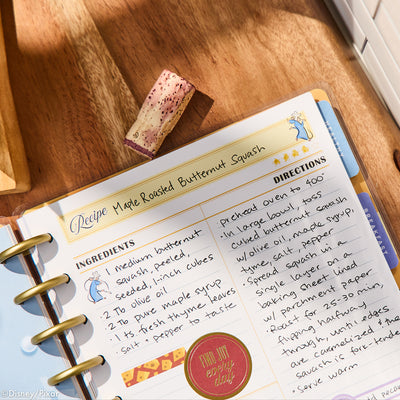 Recipe Maple Roasted Butternut Squash
INGREDIENTS
· 1 medium butternut
squash, peeled,
seeded, 1-inch cubes
· 2 Tb olive oil
· 2 Tb pure maple syrup
· 1 Ts fresh thyme leaves
· salt + pepper to taste
FIND JOY
every day
DIRECTIONS
· preheat oven to 400°
· In large bowl, toss
cubed butternut squash
w/ olive oil, maple syrup,
tyme, salt, pepper
· Spread squash in a
single layer on a
baking sheet lined
w/ parchment paper
· Roast for 25-30 min,
flipping halfway
through, until edges
are caramelized + the
squash is fork-tende
· Serve warm
BREAKFAST
©Disney/Pixar